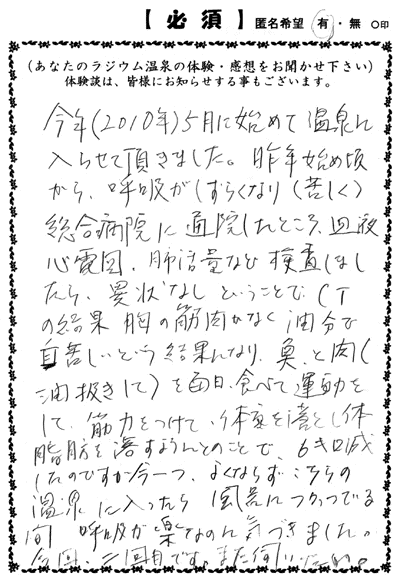 【必須】 匿名希望 有・無 ○印
(あなたのラジウム温泉の体験・感想をお聞かせ下さい)
体験談は、皆様にお知らせする事もございます。
今年(2010年)5月に始めて温泉に
入らせて頂きました。昨年始め頃
から、呼吸がしずらくなり(苦しく)
総合病院に通院したところ、血液
心電図、肺活量など検査しまし
たら、異状なしということで、CT
の結果 胸の筋肉がなく油分で
息苦しいという結果になり、魚、と肉(
油抜きして)を毎日、食べて運動を
して、筋力をつけて、体重を落とし体
脂肪を落すようにとのことで、6キロ減
したのですが今一つ、よくならずこちらの
温泉に入ったら 風呂につかってる
間 呼吸が楽なのに気づきました。
今回、二回目です。また伺い